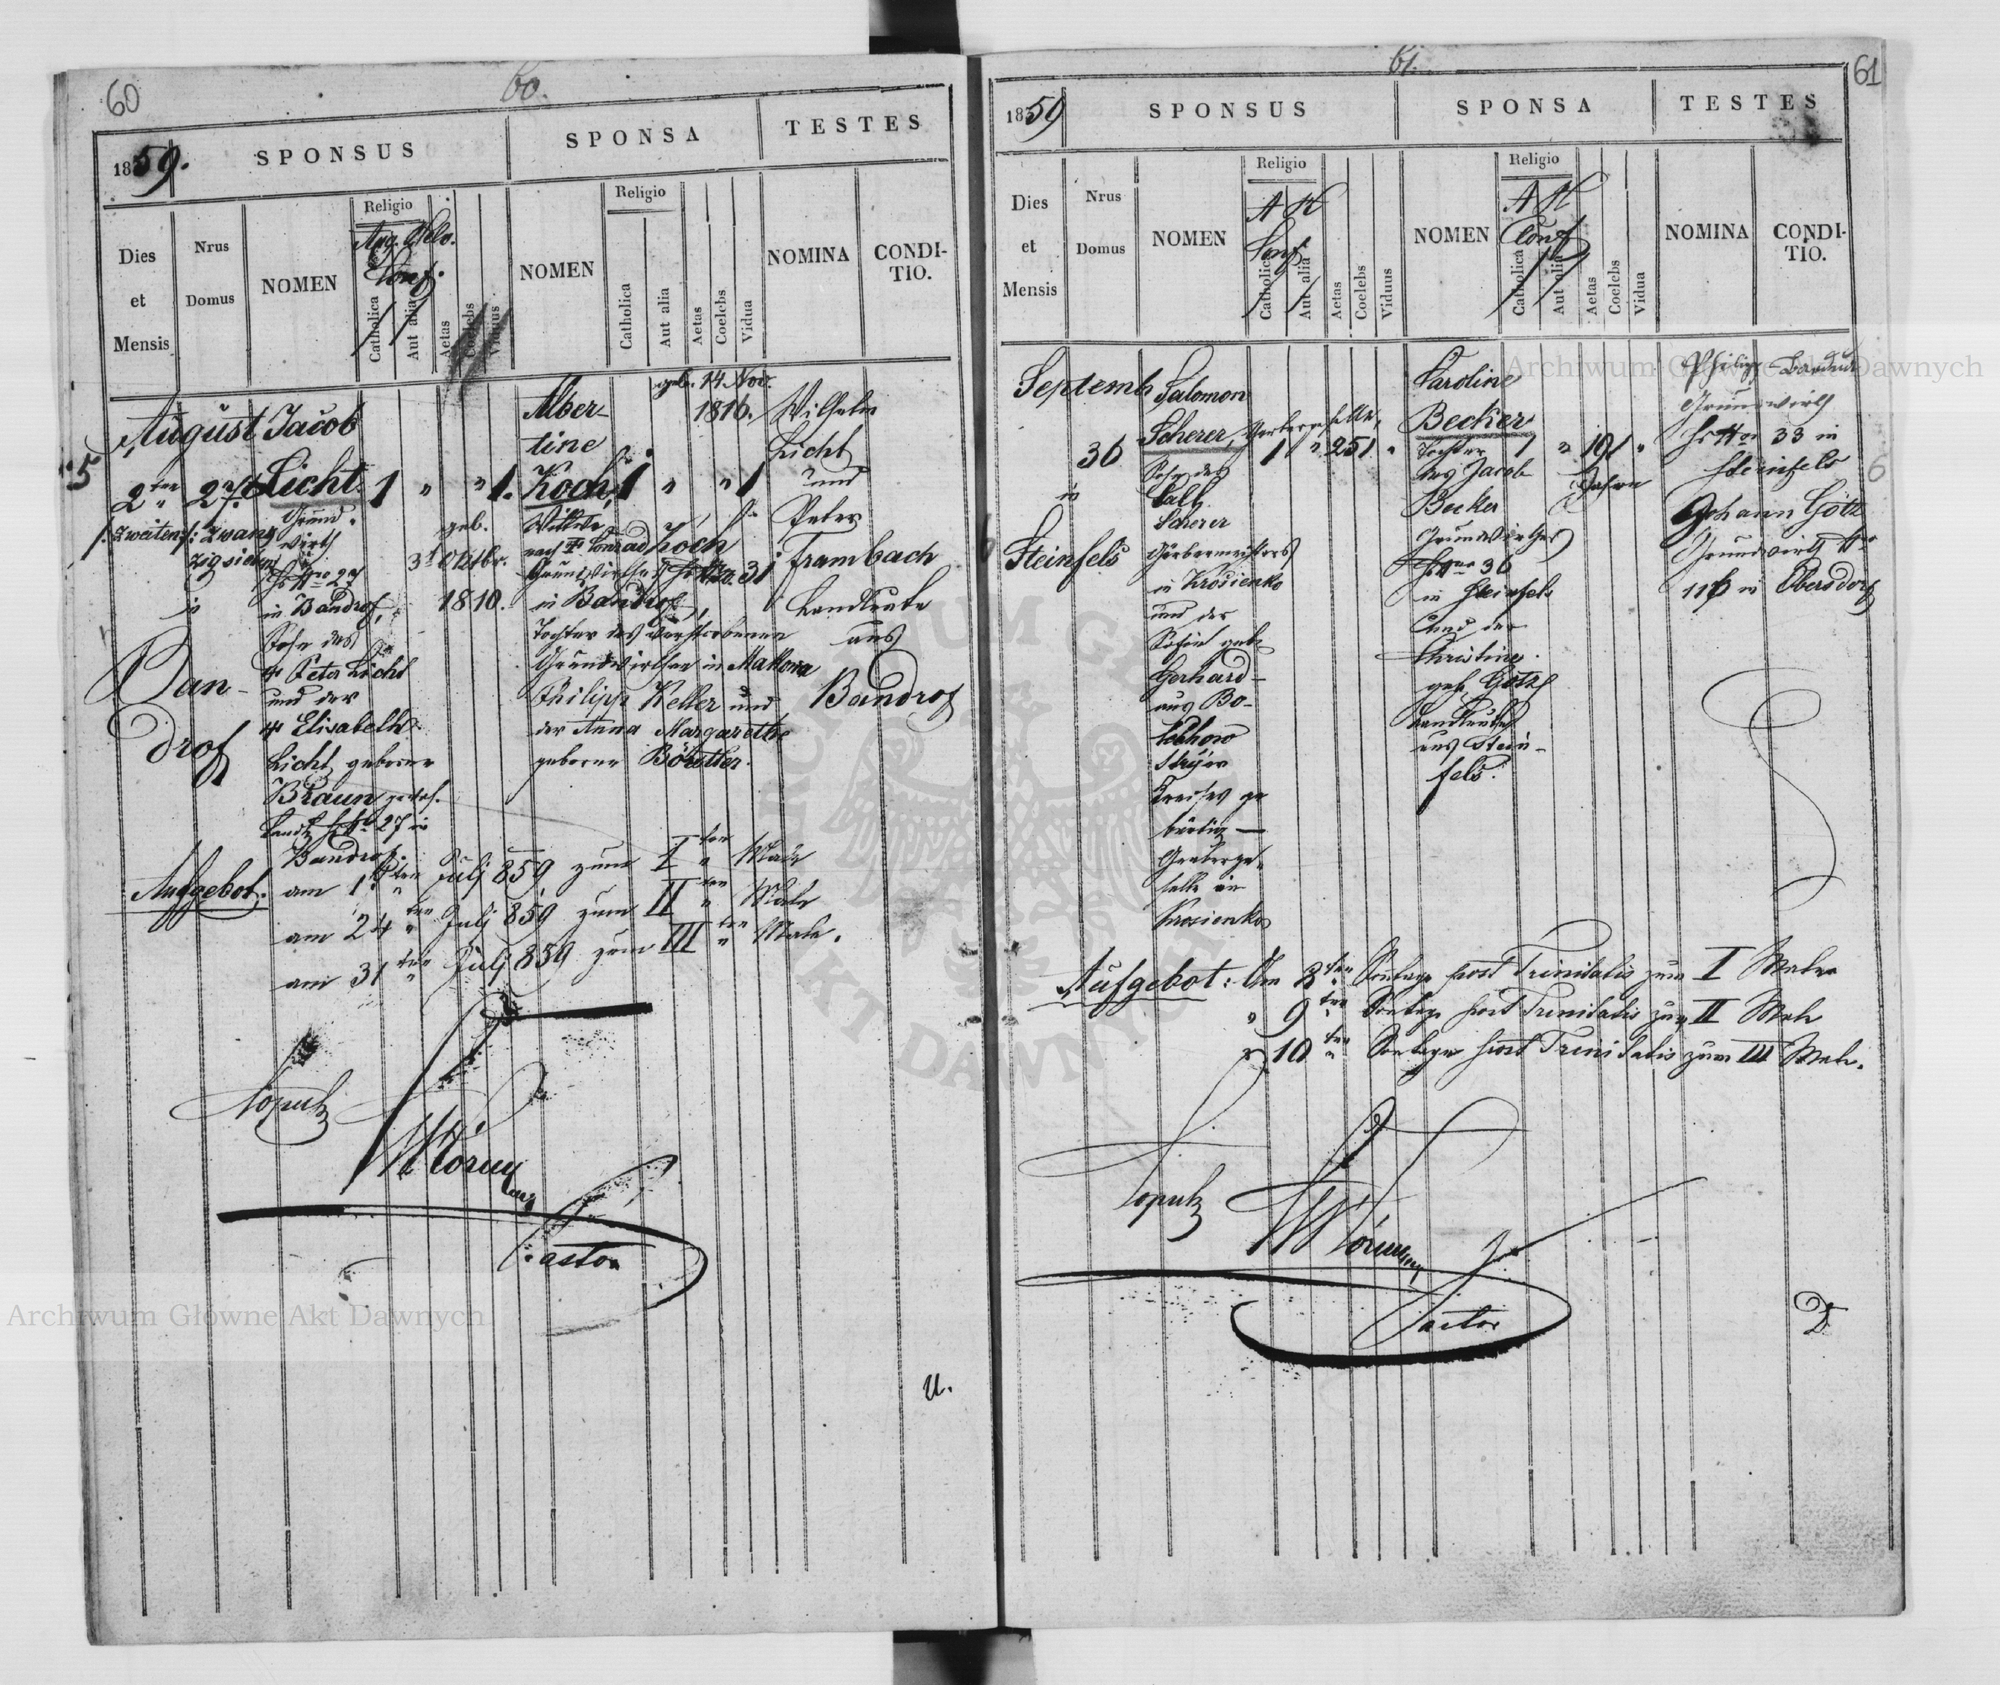 60
60.
1859.
SPONSUS
SPONSA
TESTES
Dies
et
Mensis
Nrus
Domus
NOMEN
Religio
Aug. Helv.
Conf.
Catholica
Aut alia
Aetas
Coelebs
Viduus
NOMEN
Religio
Catholica
Aut alia
Aetas
Coelebs
Vidua
NOMINA
CONDI-
TIO.
5
August
2ten
/: Zweiten :/
in
Ban-
drof
27
Zwanzig
sieben
Jacob
Licht
Grund-
wirth
in Bandrof,
Sohn des
Peter Licht
und der
Elisabeth
Licht, geborne
Braun
27 in
Bandrof.
1 " " 1.
geb.
31 Octbr.
1810.
Alber-
tine
Koch,
Wittwe
nach Conrad Koch
Grundwirthes 31
in Bandrof,
Tochter des verstorbenen
Grundwirthen in Makowa
Philipp Keller und
der Anna Margarethe
geborne Börstler.
geb. 14. Nov.
1816.
1 " " 1
Wilhelm
Licht
und
Peter
Frambach
Landleute
aus
Bandrof
Aufgebot:
am ten Julj 859 zum I ten Male
am 24 ten Julj 859 zum II ten Male
am 31 ten Julj 859 zum III ten Male.
Copulz
Pastor
61.
61
1859
SPONSUS
SPONSA
TESTES
Dies
et
Mensis
Nrus
Domus
NOMEN
Religio
A H
Conf
Catholica
Aut alia
Aetas
Coelebs
Viduus
NOMEN
Religio
A H
Conf
Catholica
Aut alia
Aetas
Coelebs
Vidua
NOMINA
CONDI-
TIO.
6
Septemb
30
in
Steinfels
Salomon
Scherer,
Sohn des
Scherer
Gärbermeisters
in Krosienko
und der
Sofie geb.
Gerhard
aus Bo-
lechow
Stryer
Kreises ge
bürtig —
Gärberge-
selle in
Krosienko
1 " 25 1 "
Caroline
Becker
Tochter
des Jacob
Becker
Grundwirthes
36
in Steinfels
und der
Christine
geb. Götz
Landleute
aus Stein-
fels.
1 " 19 1 "
Jahre
Philipp
Grundwirth
33 in
Steinfels
Johann Götz
Grundwirth Nro
116 in Obersdorf
Aufgebot: Am 8 ten Sontage post Trinitatis zum I Male
" 9 ten Sontage post Trinitatis zum II Male
" 10 ten Sontage post Trinitatis zum III Male.
Copulz
Pastor
Archiwum Główne Akt Dawnych
Archiwum Główne Akt Dawnych